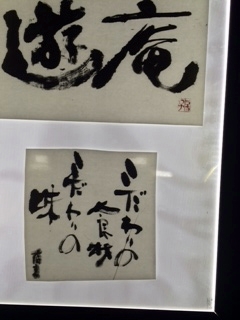 遊庵
こだわりの
食材
こだわりの
味